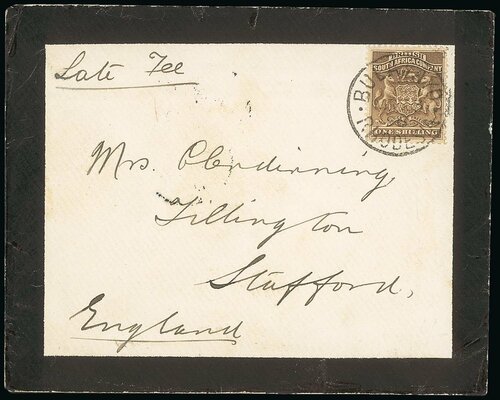 Late Fee
BRITISH
SOUTH AFRICA COMPANY
ONE SHILLING
Mrs. Clendinning
Tillington
Stafford,
England